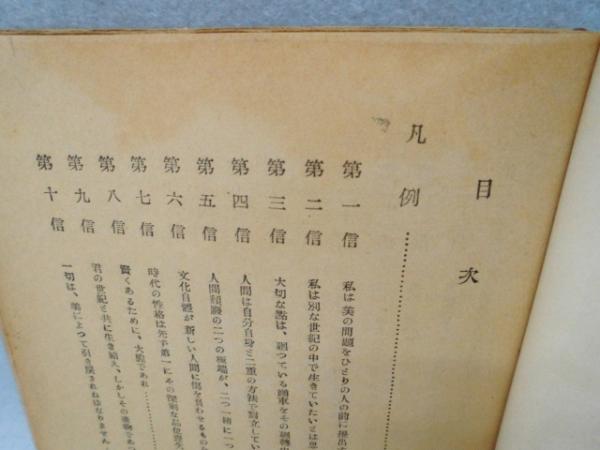 目次
凡例
第一信 私は美の問題をひとりの人の前に提出
第二信 私は別な世紀の中で生きていたいとは思
第三信 大切な點は、廻つている車をその廻轉
第四信 人間は自分自身と二重の方法で對立してい
第五信 人間頽廢の二つの極端が、二つ一緒に一つ
第六信 文化自體が新しい人間に傷を負わせるものな
第七信 時代の性格は先ず第一にその深刻な品位喪失
第八信 賢くあるために、大膽であれ
第九信 君の世紀と共に生き給え、しかしその產物であつ
第十信 一切は、美によつて引き戾されねばなりません